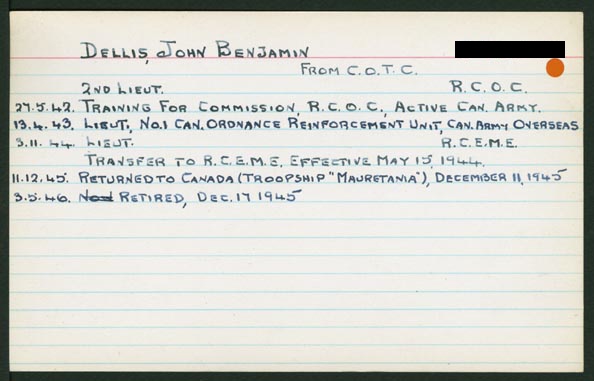 DELLIS, JOHN BENJAMIN
FROM C.O.T.C.
2ND LIEUT. R.C.O.C.
27.5.42. TRAINING FOR COMMISSION, R.C.O.C., ACTIVE CAN. ARMY.
13.4.43. LIEUT., NO.1 CAN. ORDNANCE REINFORCEMENT UNIT, CAN. ARMY OVERSEAS
3.11.44. LIEUT. R.C.E.M.E.
TRANSFER TO R.C.E.M.E. EFFECTIVE MAY 15, 1944.
11.12.45. RETURNED TO CANADA (TROOPSHIP "MAURETANIA"), DECEMBER 11, 1945
3.5.46. RETIRED, DEC. 17 1945